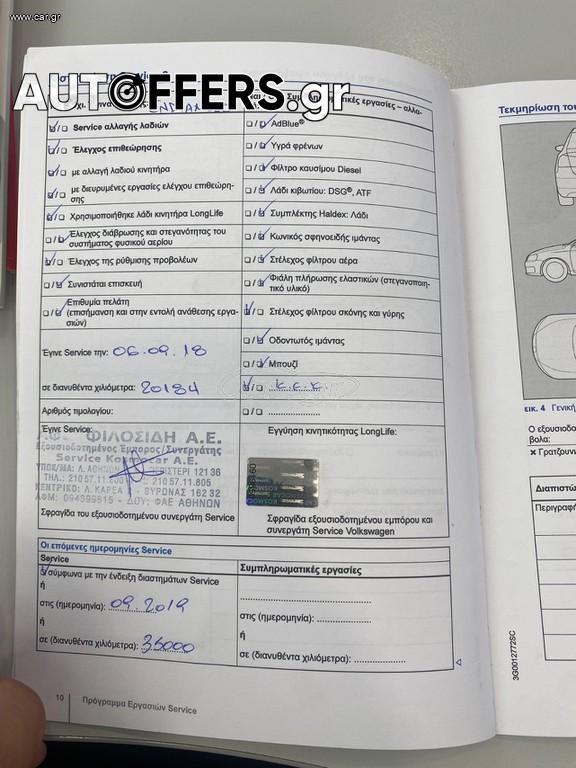 www.car.gr
AUTOFFERS.gr
Συμπληρωματικές εργασίες – αλλα-
Τεκμηρίωση το
Service αλλαγής λαδιών
AdBlue®
Έλεγχος επιθεώρησης
Υγρά φρένων
με αλλαγή λαδιού κινητήρα
Φίλτρο καυσίμου Diesel
με διευρυμένες εργασίες ελέγχου επιθεώρη-
σης
Λάδι κιβωτίου: DSG®, ATF
Χρησιμοποιήθηκε λάδι κινητήρα LongLife
Συμπλέκτης Haldex: Λάδι
Έλεγχος διάβρωσης και στεγανότητας του
συστήματος φυσικού αερίου
Κωνικός σφηνοειδής ιμάντας
Έλεγχος της ρύθμισης προβολέων
Στέλεχος φίλτρου αέρα
Συνιστάται επισκευή
Φιάλη πλήρωσης ελαστικών (στεγανοποιη-
τικό υλικό)
Επιθυμία πελάτη
(επισήμανση και στην εντολή ανάθεσης εργα-
σιών)
Στέλεχος φίλτρου σκόνης και γύρης
Οδοντωτός ιμάντας
Έγινε Service την: 06.09.18
Μπουζί
σε διανυθέντα χιλιόμετρα: 20184
κ.ε.κ.
Αριθμός τιμολογίου:
Έγινε Service:
Εγγύηση κινητικότητας LongLife:
ΑΦΟΙ ΦΙΛΟΣΙΔΗ Α.Ε.
Εξουσιοδοτημένος Έμπορος/Συνεργάτης
Service Kosmocar A.E.
ΥΠΟΚ/ΜΑ: Λ. ΑΘΗΝΩΝ ΠΕΡΙΣΤΕΡΙ 121 36
ΤΗΛ.: 210 57.11.800 210 57.11.805
ΚΕΝΤΡΙΚΟ: Λ. ΚΑΡΕΑ ΒΥΡΩΝΑΣ 162 32
ΑΦΜ: 094999815 - ΔΟΥ: ΦΑΕ ΑΘΗΝΩΝ
Σφραγίδα του εξουσιοδοτημένου συνεργάτη Service
Σφραγίδα εξουσιοδοτημένου εμπόρου και
συνεργάτη Service Volkswagen
Οι επόμενες ημερομηνίες Service
Service
Συμπληρωματικές εργασίες
σύμφωνα με την ένδειξη διαστημάτων Service
ή
στις (ημερομηνία): 09.2019
στις (ημερομηνία):
ή
ή
σε (διανυθέντα χιλιόμετρα): 35000
σε (διανυθέντα χιλιόμετρα):
10
Πρόγραμμα Εργασιών Service
εικ. 4 Γενική
Ο εξουσιοδ
βολα:
× Γρατζουν
Διαπιστώ
Περιγραφή
3G0012772SC